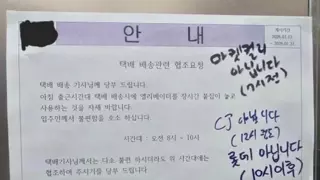 안 내
택배 배송관련 협조요청
택배 배송 기사님께 당부 드립니다.
아침 출근시간대 택배 배송시에 엘리베이터를 장시간 붙잡아 놓고
사용하는 것을 자제 바랍니다.
입주민께서 불편함을 호소 하십니다.
시간대 : 오전 8시 ~ 10시
택배기사님께서는 다소 불편 하시더라도 위 시간대에는
협조하여 주시기를 당부 드립니다
마켓컬리
아닙니다
(7시전)
CJ 아닙니다
(12시 경도)
롯데 아닙니다
(10시이후)